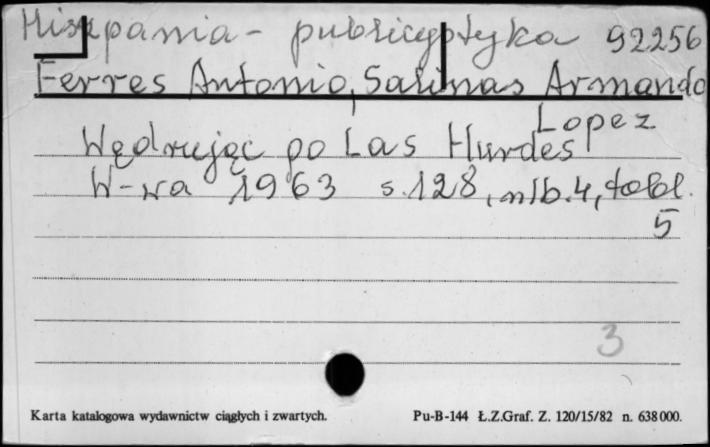 Hiszpania - publicystyka 92256
Ferres Antonio, Salinas Armando
Lopez
Wędrując po Las Hurdes
W-wa 1963 s. 128, nlb. 4, tabl.
5
3
Karta katalogowa wydawnictw ciągłych i zwartych. Pu-B-144 Ł.Z.Graf. Z. 120/15/82 n. 638000.